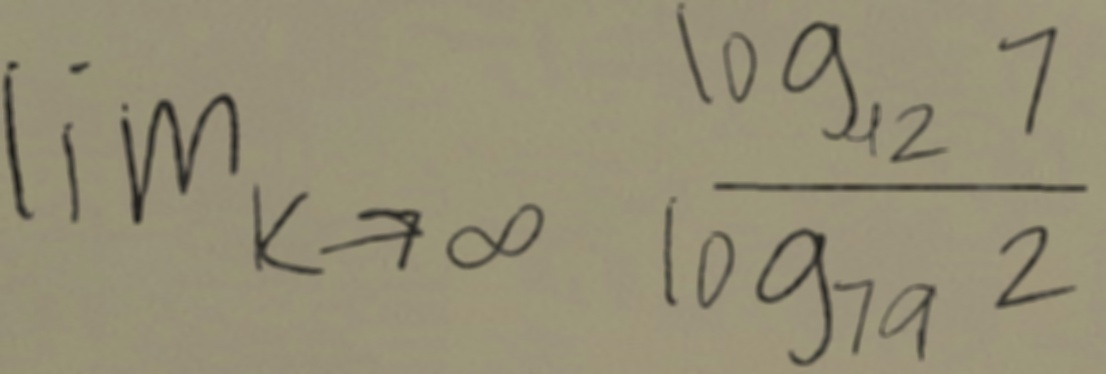 lim_{k→∞} \frac{log_{42} 7}{log_{79} 2}